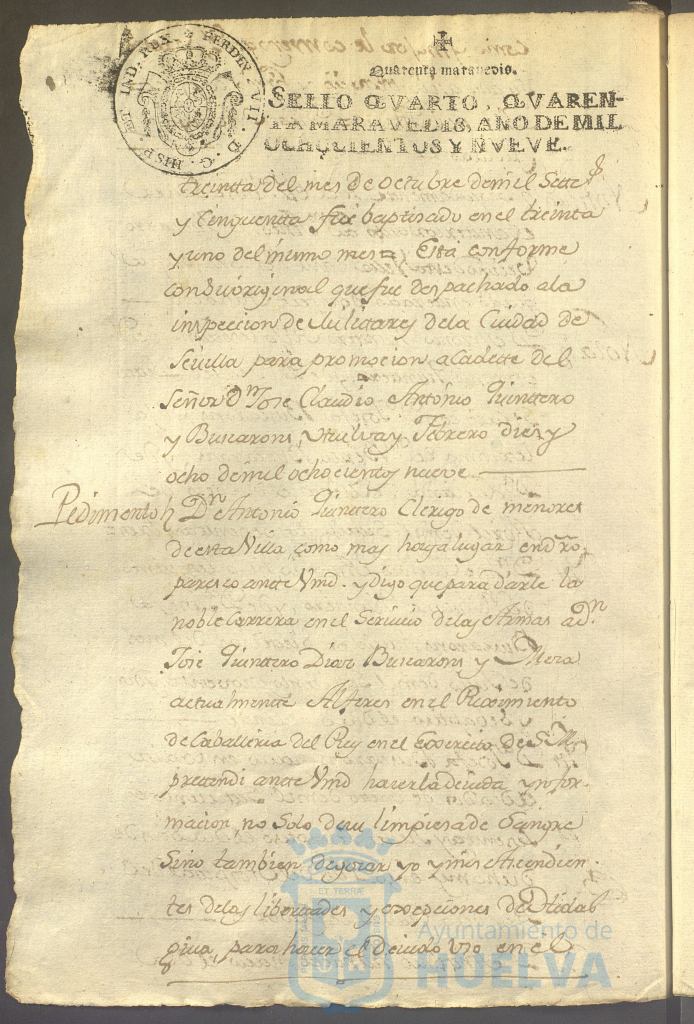 HISP. ET IND. REX. FERDIN. VII. D. G.
Quarenta maravedis.
SELLO QVARTO, QVAREN-
TA MARAVEDIS, AÑO DE MIL
OCHOCIENTOS Y NVEVE.
treinta del mes de octubre de mil Sete.
y Cinquenta fue baptisado en el treinta
y uno del mismo mes = Está conforme
con su original que fue despachado a la
inspeccion de Militares de la Ciudad de
Sevilla para promocion a Cadette del
Señor Dn Jose Claudio Antonio Quintero
y Buscarons, Huelva y Febrero diez y
ocho de mil ochocientos nueve
Pedimento Dn Antonio Quintero Clerigo de menores
de esta Villa, como mas haya lugar en dro
paresco ante Vmd. y Digo que para darle la
noble Carrera en el Servicio de las Armas a Dn
Jose Quintero Diaz Buscarons y Mera
actualmente Alferes en el Reximiento
de Caballeria del Rey en el Exercito de S. M.
pretendi ante Vmd hacer la devida ynfor-
macion, no solo de su limpiesa de Sangre
Sino tambien de gozar yo y mis Ascendien-
tes de las libertades y exepciones de Hidal
guia, para hacer el devido uso en el
ET TERRÆ
Ayuntamiento de
HUELVA